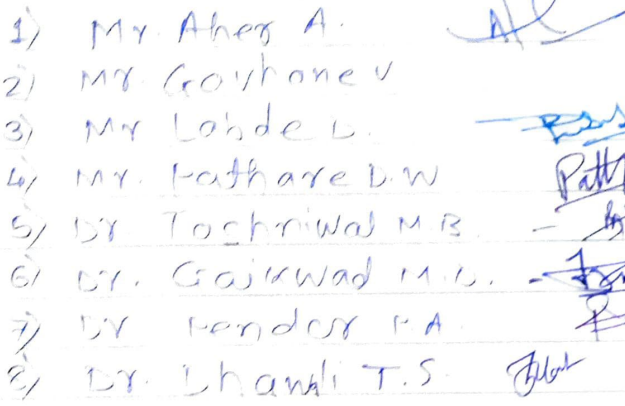 1) Mr. Aher A.
2) Mr. Govhane V
3) Mr Labde D.
4) Mr. Pathare D.W
5) Dr Tochniwal M.B.
6) Dr. Gaikwad M.D.
7) Dr Pendor P.A.
8) Dr. T.S.